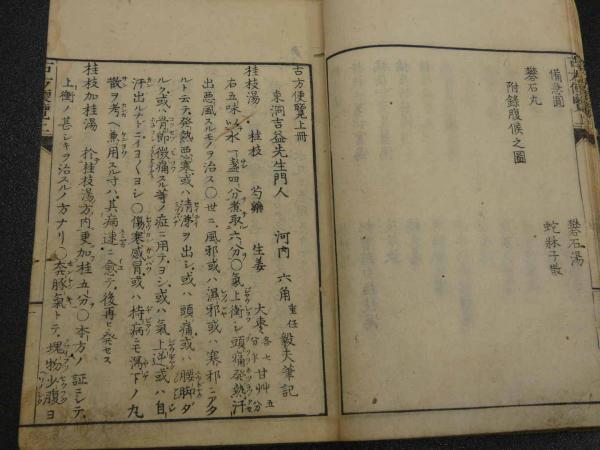 備急圓
礬石湯
礬石丸
蛇牀子散
附錄腹候之圖
古方便覽上冊
東洞吉益先生門人 河内 六角重任毅夫筆記
桂枝湯 桂枝 芍藥 生姜 大棗各七分 甘艸五分
右五味以水一盞四分煮取六分〇氣上衝シ頭痛発熱汗
出悪風スルモノヲ治ス〇世ニ風邪或ハ濕邪或ハ寒邪ニアタ
ルト云テ発熱悪寒或ハ清涕ヲ出シ或ハ頭痛或ハ腰脚ダ
ルク或ハ骨節微痛スル等ノ症ニ用テヨシ或ハ氣上逆或ハ自
汗出ルナドニイヨイヨヨシ〇傷寒感冒或ハ持病ニモ瀉下ノ丸
散ヲ考ヘ兼用スル寸ハ其病速ニ愈テ後再ヒ発セス
桂枝加桂湯 於桂枝湯方内更加桂五分〇本方ノ証ニシテ
上衝ノ甚シキヲ治スルノ方ナリ〇奔豚氣トテ塊物少腹ヨ